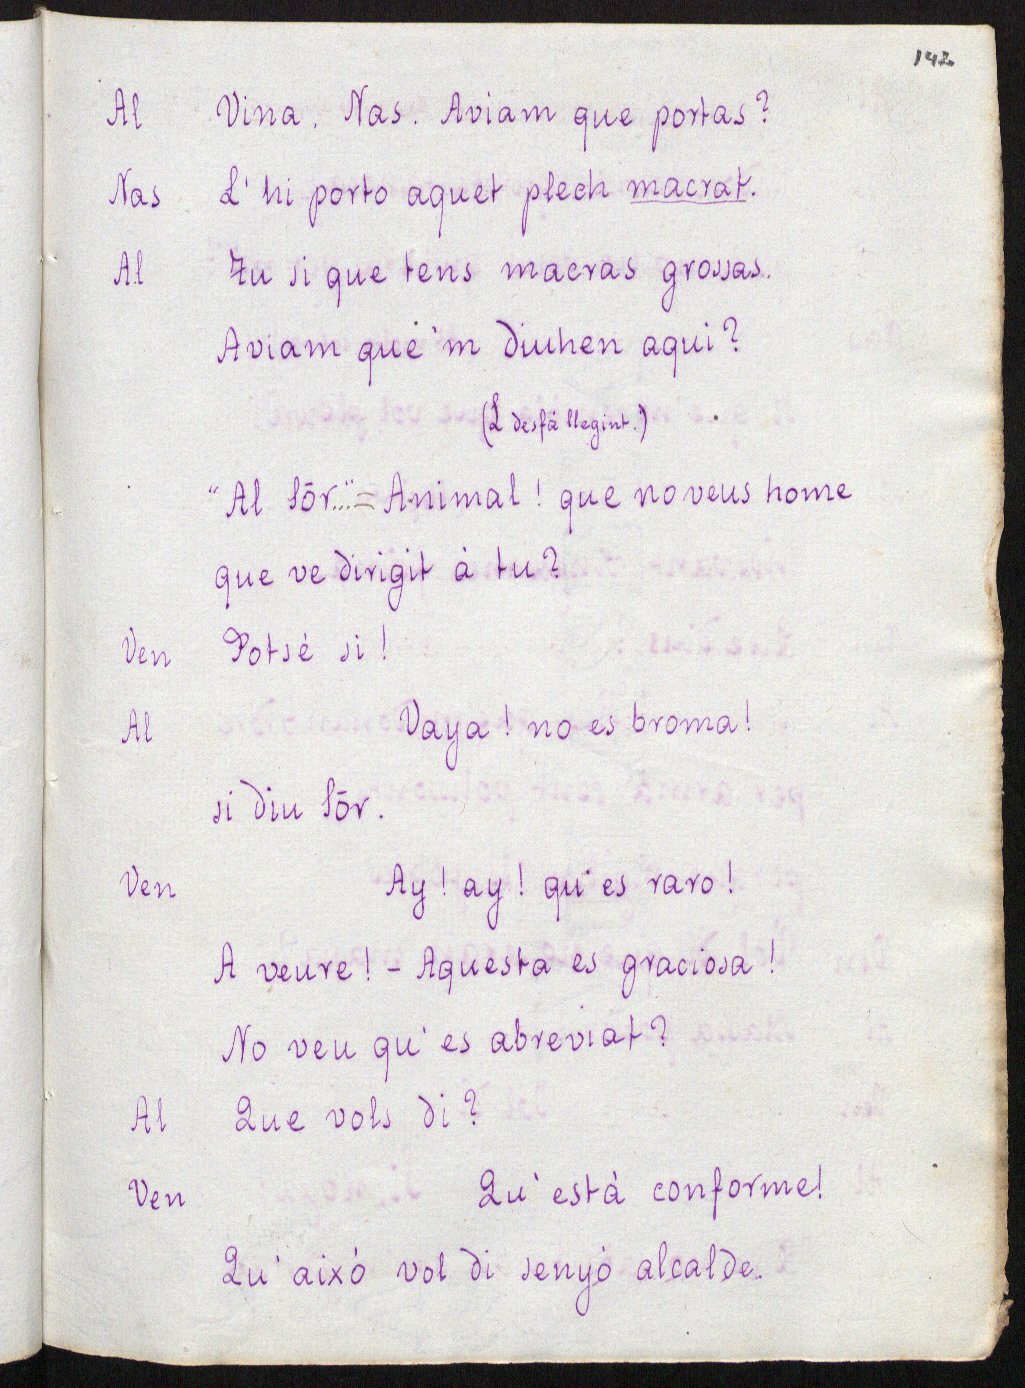 142
Al Vina, Nas. Aviam que portas?
Nas L'hi porto aquet plech macrat.
Al Tu si que tens macras grossas.
Aviam que'm diuhen aqui?
(L desfá llegint.)
"Al Sōr..." = Animal! que no veus home
que ve dirigit á tu?
Ven Potsé si!
Al Vaya! no es broma!
si diu Sōr.
Ven Ay! ay! qu'es raro!
A veure! - Aquesta es graciosa!
No veu qu'es abreviat?
Al Que vols di?
Ven Qu'està conforme!
Qu'aixó vol di senyó alcalde.